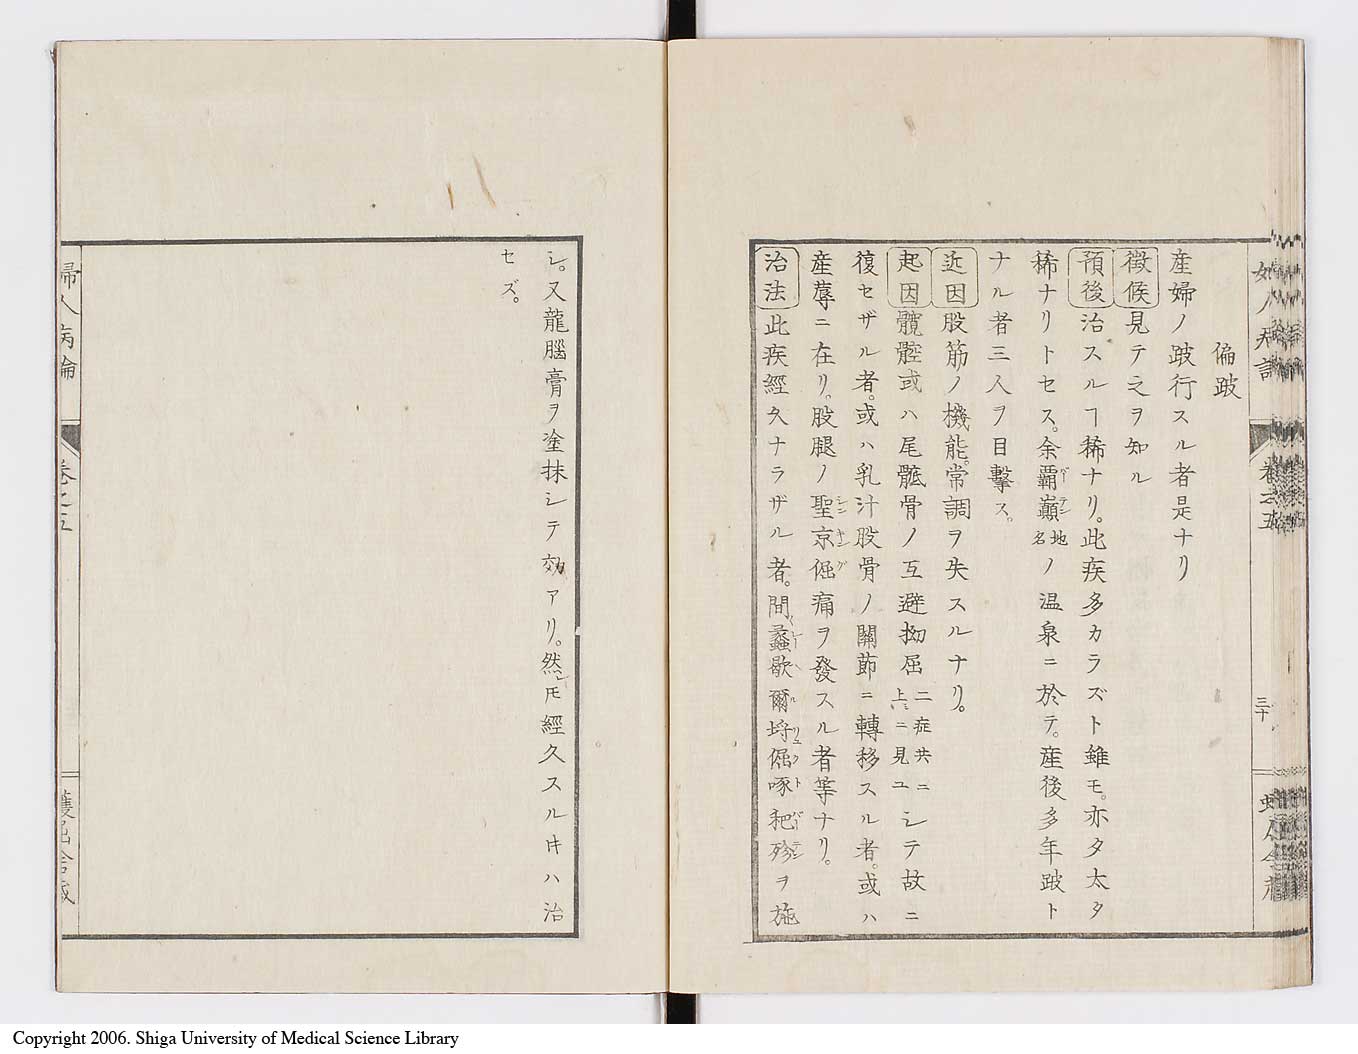 偏跛
産婦ノ跛行スル者是ナリ
徴候見テ之ヲ知ル
預後治スルヿ稀ナリ。此疾多カラズト雖モ。亦タ太タ
稀ナリトセス。余覇巓バーデン地名ノ温泉ニ於テ。産後多年跛ト
ナル者三人ヲ目擊ス。
近因股筋ノ機能。常調ヲ失スルナリ。
起因髖髂或ハ尾骶骨ノ互避拗屈二症共ニ上ミニ見ユシテ故ニ
復セザル者。或ハ乳汁股骨ノ關節ニ轉移スル者。或ハ
産蓐ニ在リ。股腿ノ聖京倔シンキング痛ヲ發スル者等ナリ。
治法此疾經久ナラザル者。間蠡歇爾埒倔啄䄻殄ヲ施
シ。又龍腦膏ヲ塗抹シテ効アリ。然シ𪜈經久スルキハ治
セズ。
婦人病論
卷之五
三十
Copyright 2006. Shiga University of Medical Science Library